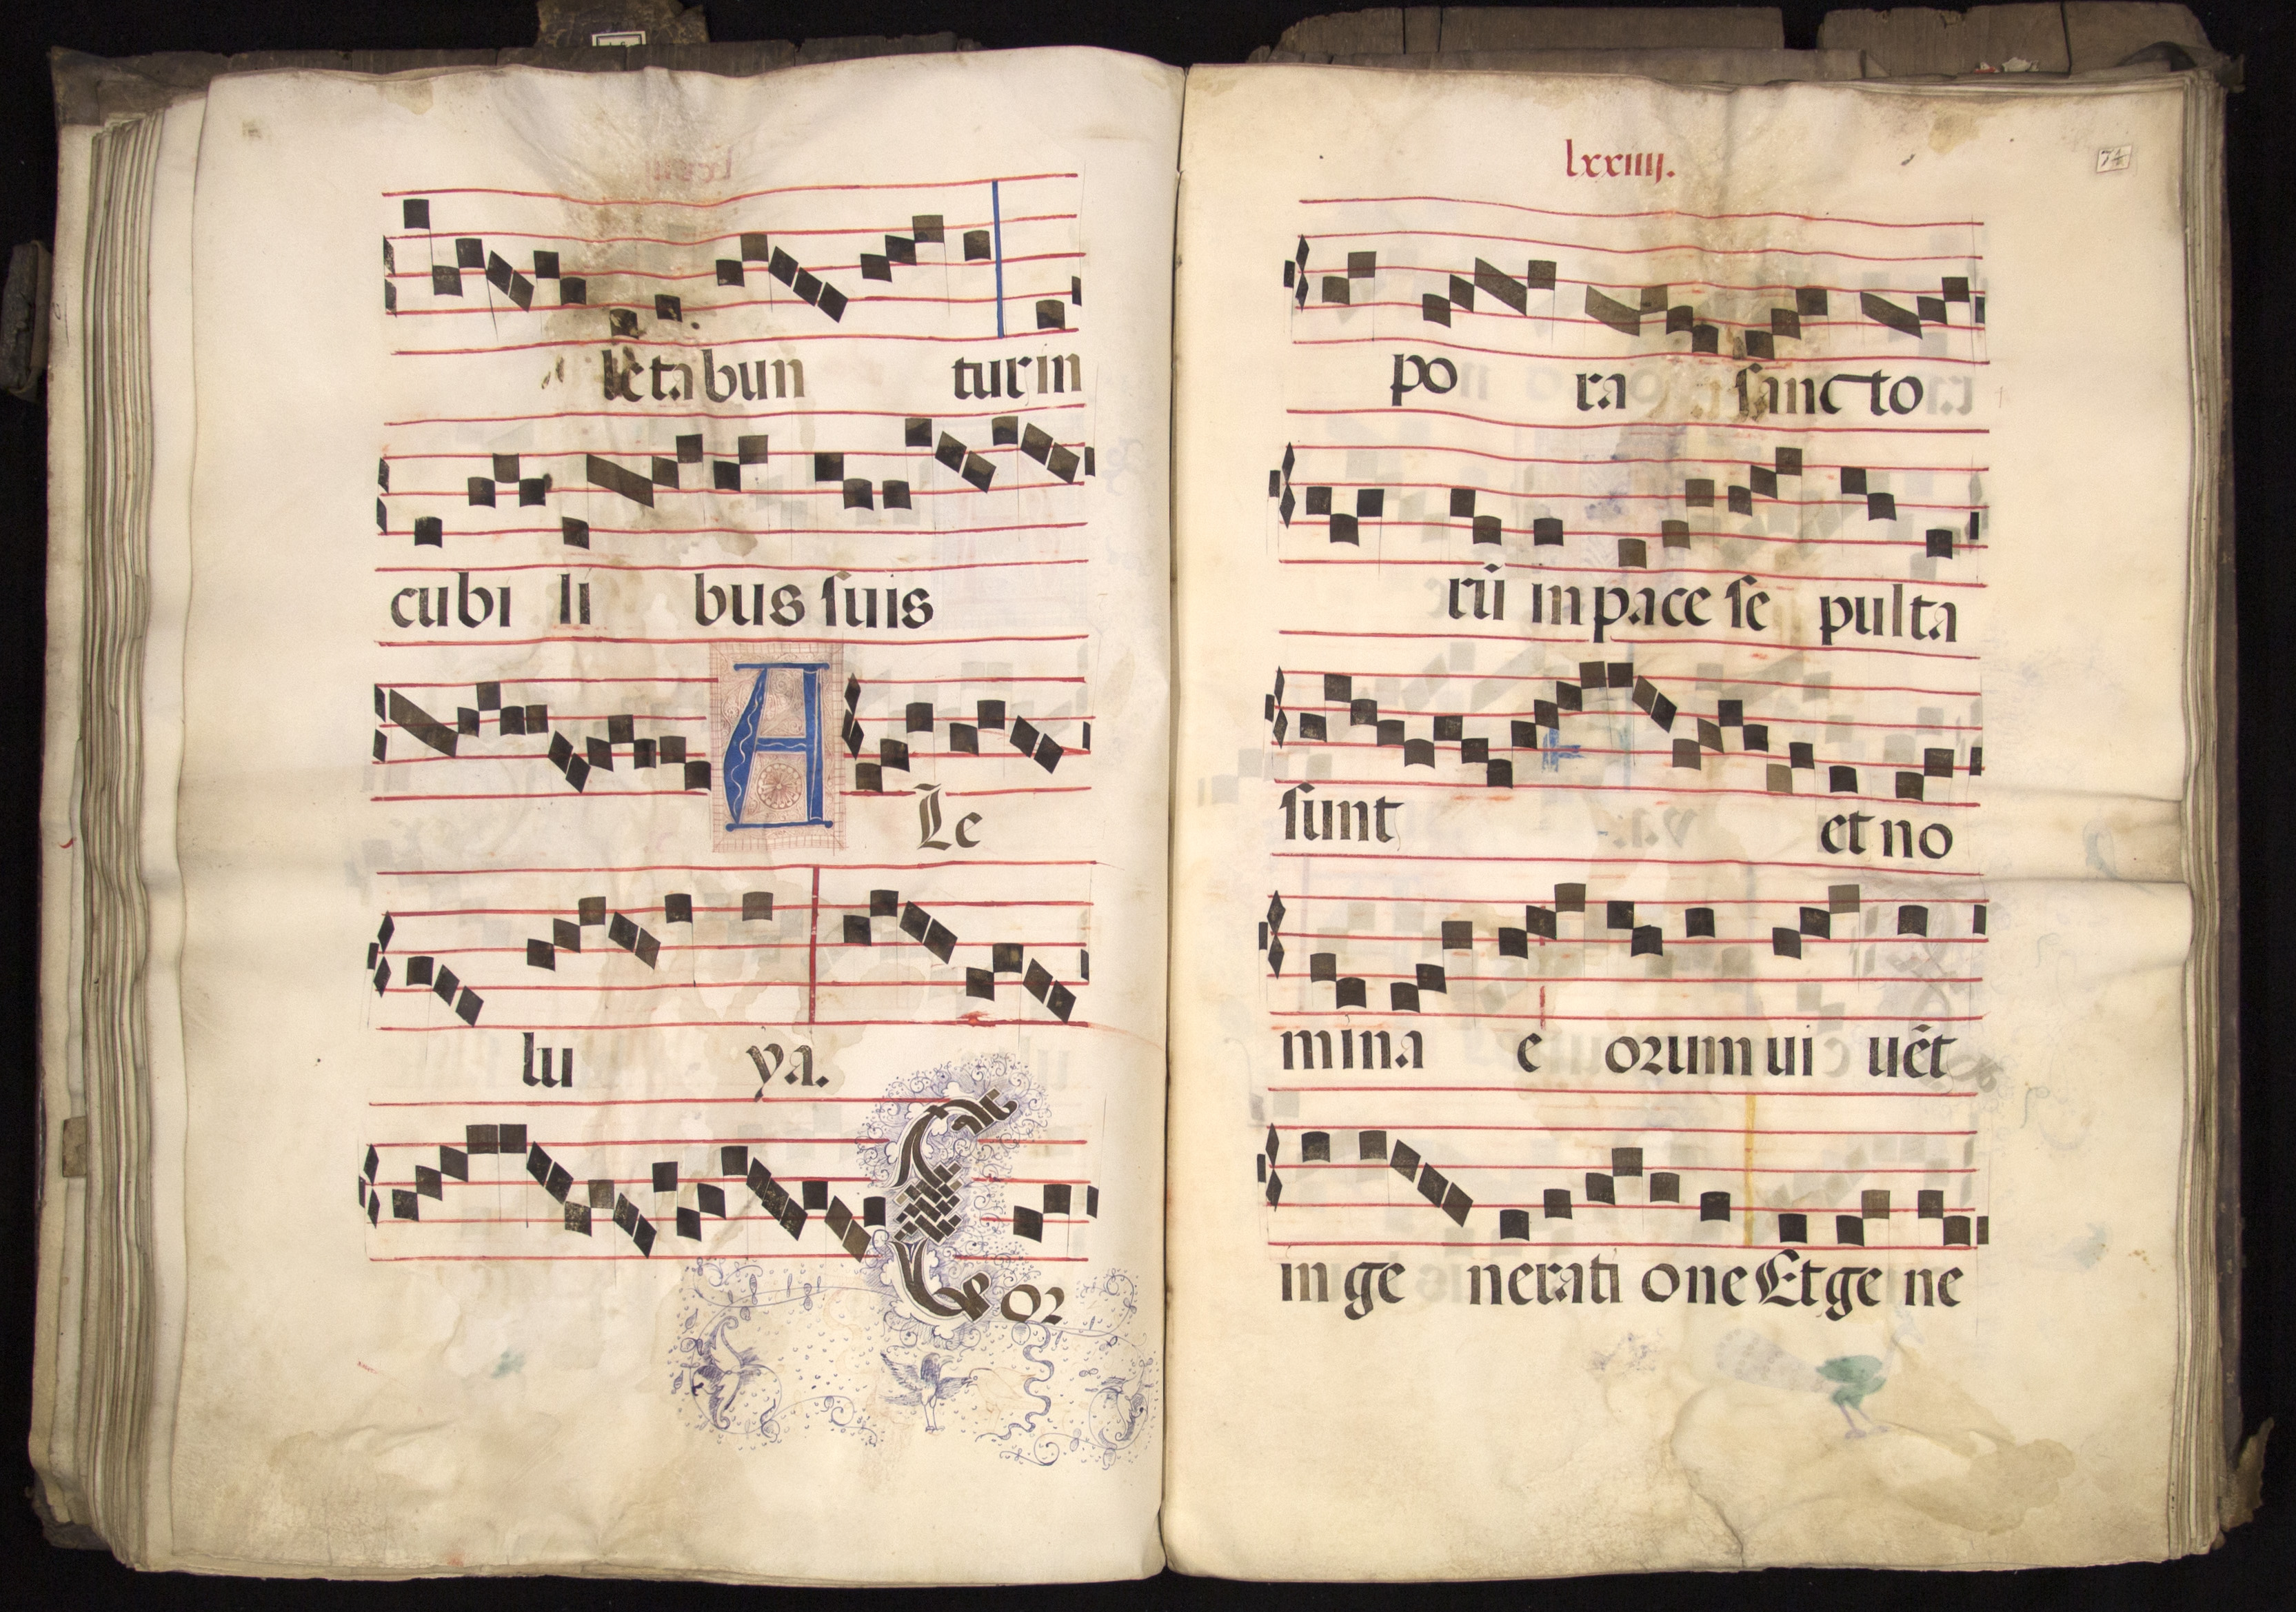 letabun tur in
cubi li bus ſuis
A Le
lu ya.
C or
lxxiiij.
74
po ra ſanc to
rū in pace ſe pulta
ſunt et no
mina e orum ui uēt
in ge nerati one Et ge ne